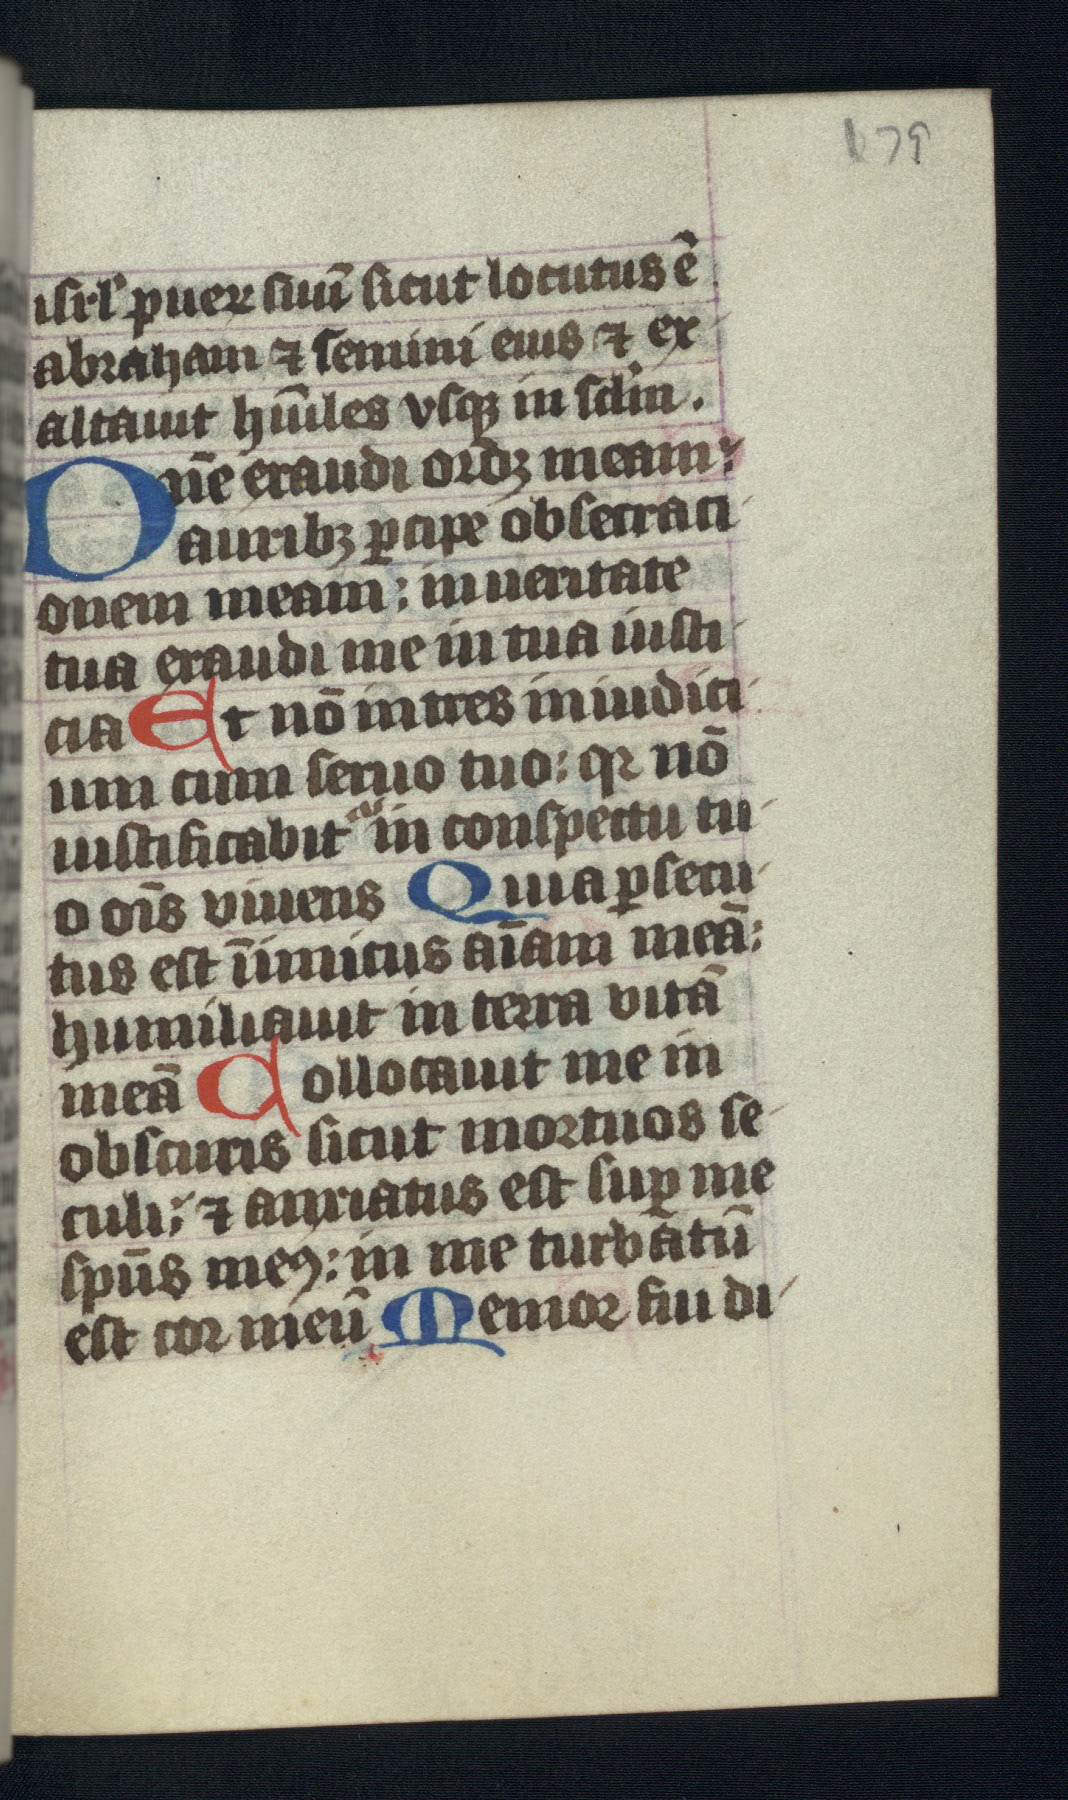 179
isrl' puer suū sicut locutus ē
abraham ⁊ semini eius ⁊ ex
altauit hūiles vsqꝫ in sclm̄.
Dn̄e exaudi oroꝫ meam:
auribꝫ ꝑcipe obsecraci
onem meam: in ueritate
tua exaudi me in tua iusti
cia Et nō intres in iudici
um cum seruo tuo: qꝛ nō
iustificabitᷣ in conspectu tu
o oīs viuens Quia ꝑsecu
tus est īimicus aīam meā:
humiliauit in terra vitā
meā Collocauit me in
obscuris sicut mortuos se
culi: ⁊ anxiatus est suꝑ me
spūs meꝰ: in me turbatū
est cor meū Memor fui di